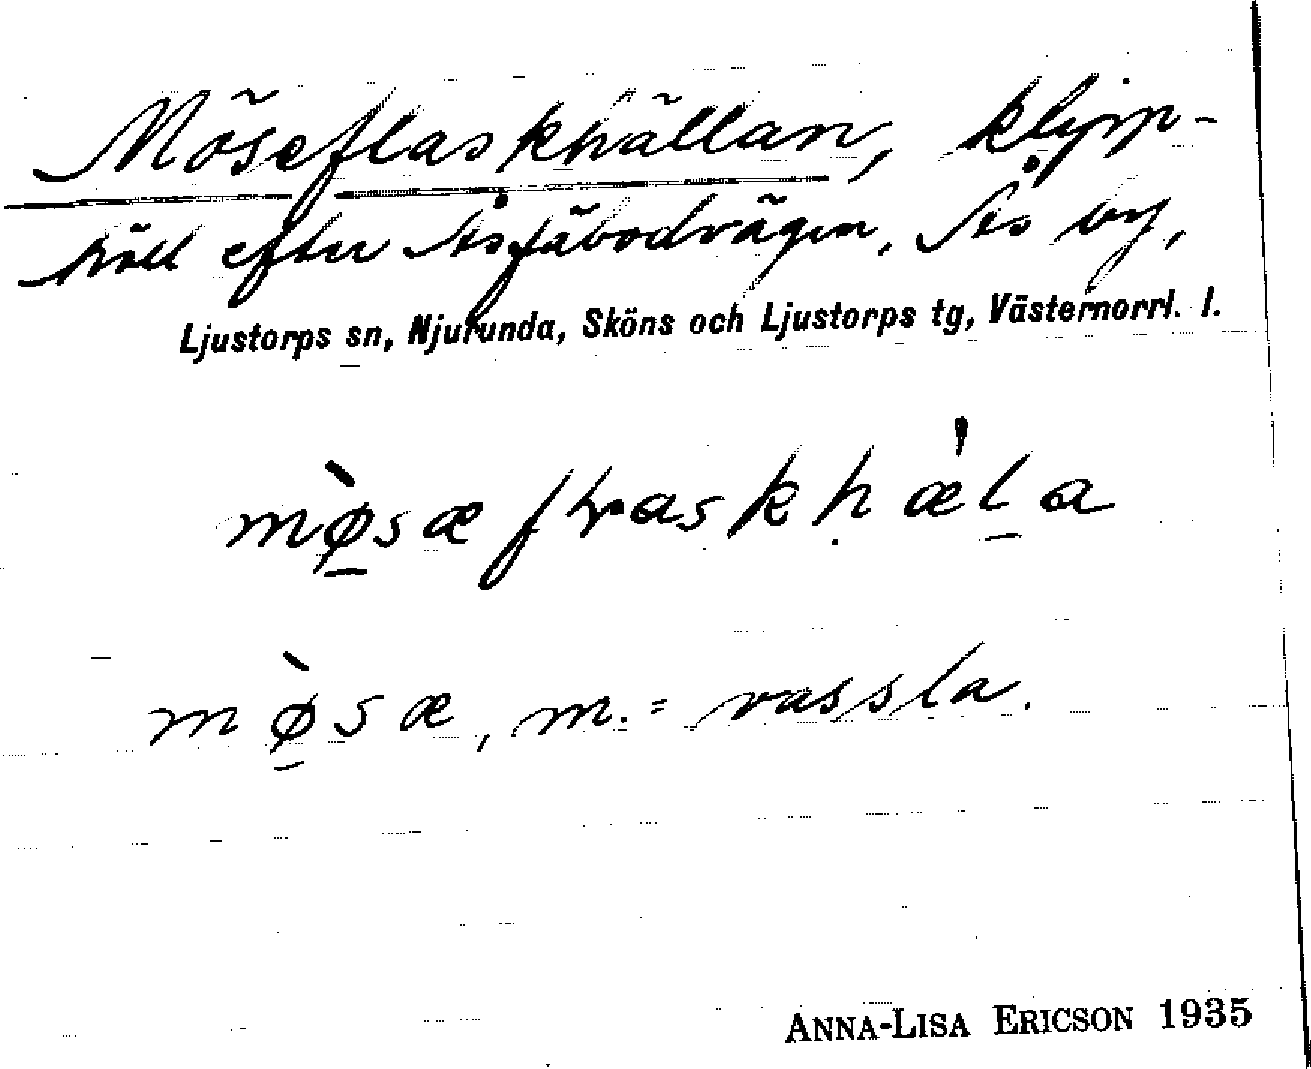 Möseflaskhällan, klipp-
häll efter Åsfäbodvägen, Ås by,
Ljustorps sn, Njurunda, Sköns och Ljustorps tg, Västernorrl. l.
mø̱̀sæflraskhæ̍ḻa
mø̱̀sæ, m. = vassla.
ANNA-LISA ERICSON 1935